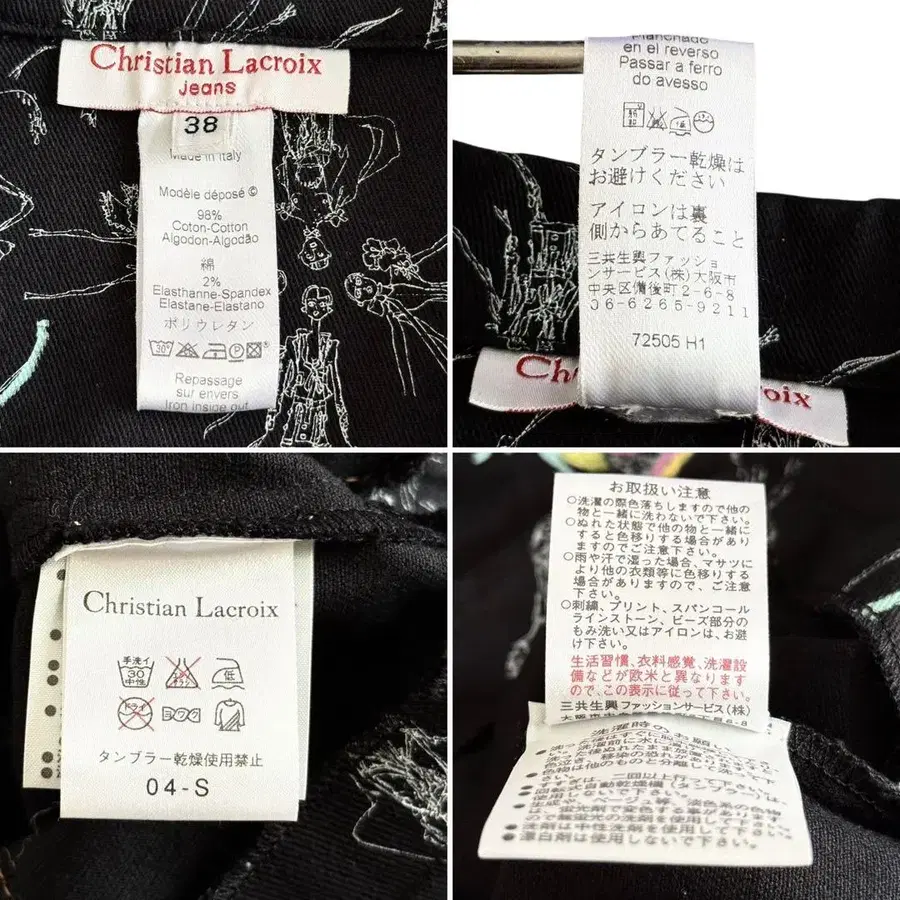 Christian Lacroix
Jeans
38
Made in Italy
Modèle déposé ©
98%
Coton-Cotton
Algodon-Algodão
綿
2%
Elasthanne-Spandex
Elastane-Elastano
ポリウレタン
30°
Repassage
sur envers
Iron inside out
Planchado
en el reverso
Passar a ferro
do avesso
低
タンブラー乾燥は
お避けください
アイロンは裏
側からあてること
三共生興ファッショ
ンサービス(株)大阪市
中央区備後町2-6-8
06-6265-9211
72505 H1
Christian Lacroix
手洗イ
30
中性
低
ドライ
ヨワク
タンブラー乾燥使用禁止
04-S
お取扱い注意
○洗濯の際色落ちしますので他の
物と一緒に洗わないで下さい。
○ぬれた状態で他の物と一緒に
すると色移りする場合があり
ますのでご注意下さい。
○雨や汗で湿った場合、マサツに
より他の衣類等に色移りする
場合がありますので、ご注意
下さい。
○刺繍、プリント、スパンコール
ラインストーン、ビーズ部分の
もみ洗い又はアイロンは、お避
け下さい。
生活習慣、衣料感覚、洗濯設
備などが欧米と異なります
ので、この表示に従って下さい。
三共生興ファッションサービス(株)
洗濯時のお願い
すすぎは、二回以上行って下さい。
使用しないで下さい。
●洗剤は中性洗剤を使用して下さい。
●漂白剤は使用しないで下さい。